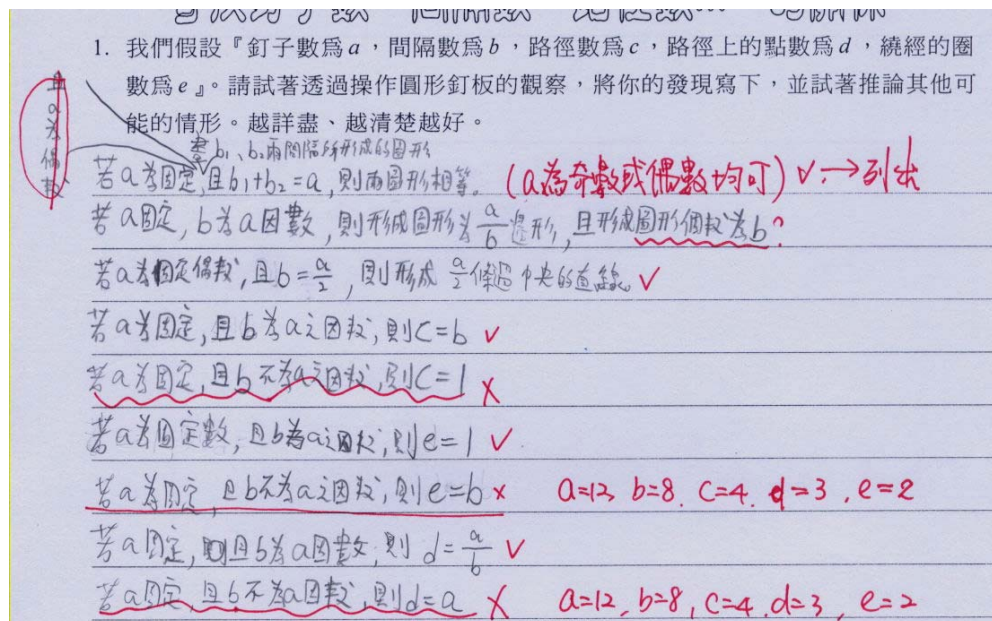 1. 我們假設『釘子數為a，間隔數為b，路徑數為c，路徑上的點數為d，繞經的圈
數為e』。請試著透過操作圓形釘板的觀察，將你的發現寫下，並試著推論其他可
能的情形。越詳盡、越清楚越好。
且a為偶數
b₁、b₂兩間隔所形成的圖形
若a為固定,且b₁+b₂=a,則兩圖形相等。(a為奇數或偶數均可)✓→列出
若a固定,b為a因數,則形成圖形為a/b邊形,且形成圖形個數為b?
若a為固定偶數,且b=a/2,則形成a/2條過中央的直線 ✓
若a為固定,且b為a之因數,則c=b ✓
若a為固定,且b不為a之因數,則c=1 ✗
若a為固定數,且b為a之因數,則e=1 ✓
若a為固定,且b不為a之因數,則e=b × a=12 b=8. c=4. d=3 . e=2
若a固定,且b為a因數,則d=a/b ✓
若a固定,且b不為a因數,則d=a ✗ a=12, b=8, c=4. d=3, e=2